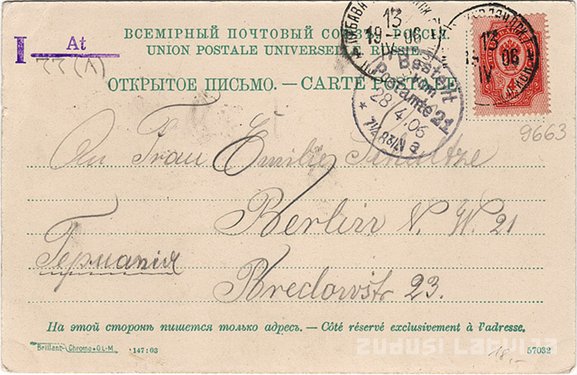 I At
ВСЕМІРНЫЙ ПОЧТОВЫЙ СОЮЗЪ. РОССІЯ.
UNION POSTALE UNIVERSELLE. RUSSIE.
ОТКРЫТОЕ ПИСЬМО. — CARTE POSTALE.
ЛИБАВА
13
19 06
IV
13
06
IV
Bestellt
vom
Postamte 21
28/4.06
9663
An Frau Emilie Schultze
Berlin N. W. 21
Германія
Bredowstr 23.
На этой сторонѣ пишется только адресъ. — Côté réservé exclusivement à l'adresse.
Brillant-Chromo-G.L-M. 147:03
57032
zudusi Latvija
18,-